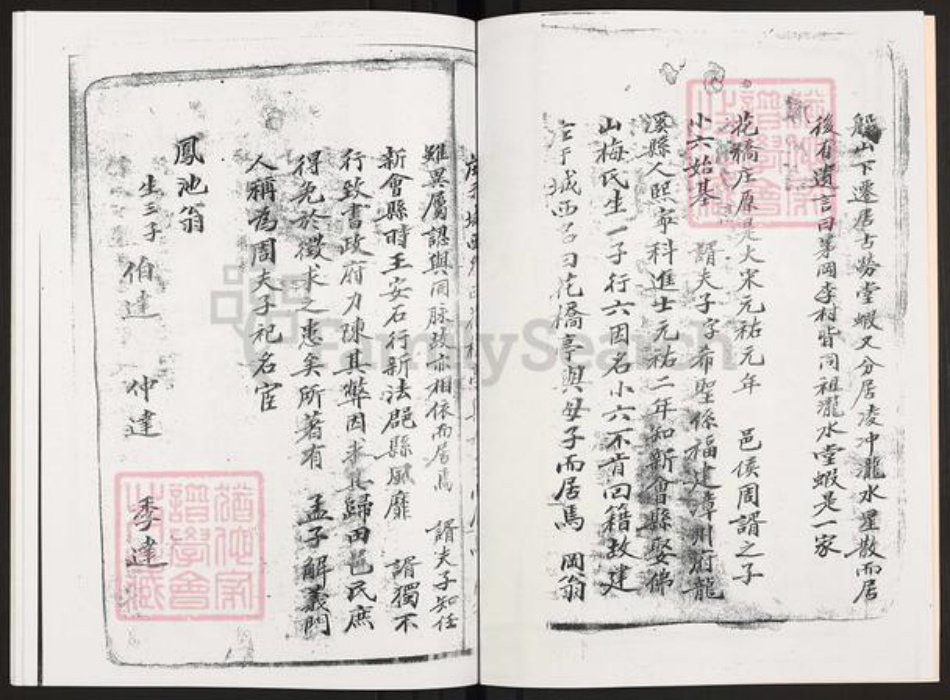 船山下遷居古勞堂蝦又分居凌冲瀧水星散而居
後有遺言曰茅岡李村皆同祖瀧水堂蝦是一家
花橋庄原是大宋元祐元年 邑侯周諝之子
小六始基 諝夫子字希聖係福建漳州府龍
溪縣人熙寧科進士元祐二年知新會縣娶佛
山梅氏生一子行六因名小六不肯回籍故建
于城西名曰花橋亭與母子而居焉 岡翁
雖異屬認與同脉故亦相依而居焉 諝夫子知任
新會縣時王安石行新法郡縣風靡 諝獨不
行致書政府力陳其弊因求其歸田邑民庶
得免於徵求之患矣所著有 孟子解義門
人稱為周夫子祀名宦
鳳池翁
生三子 伯達 仲達 季達
FamilySearch